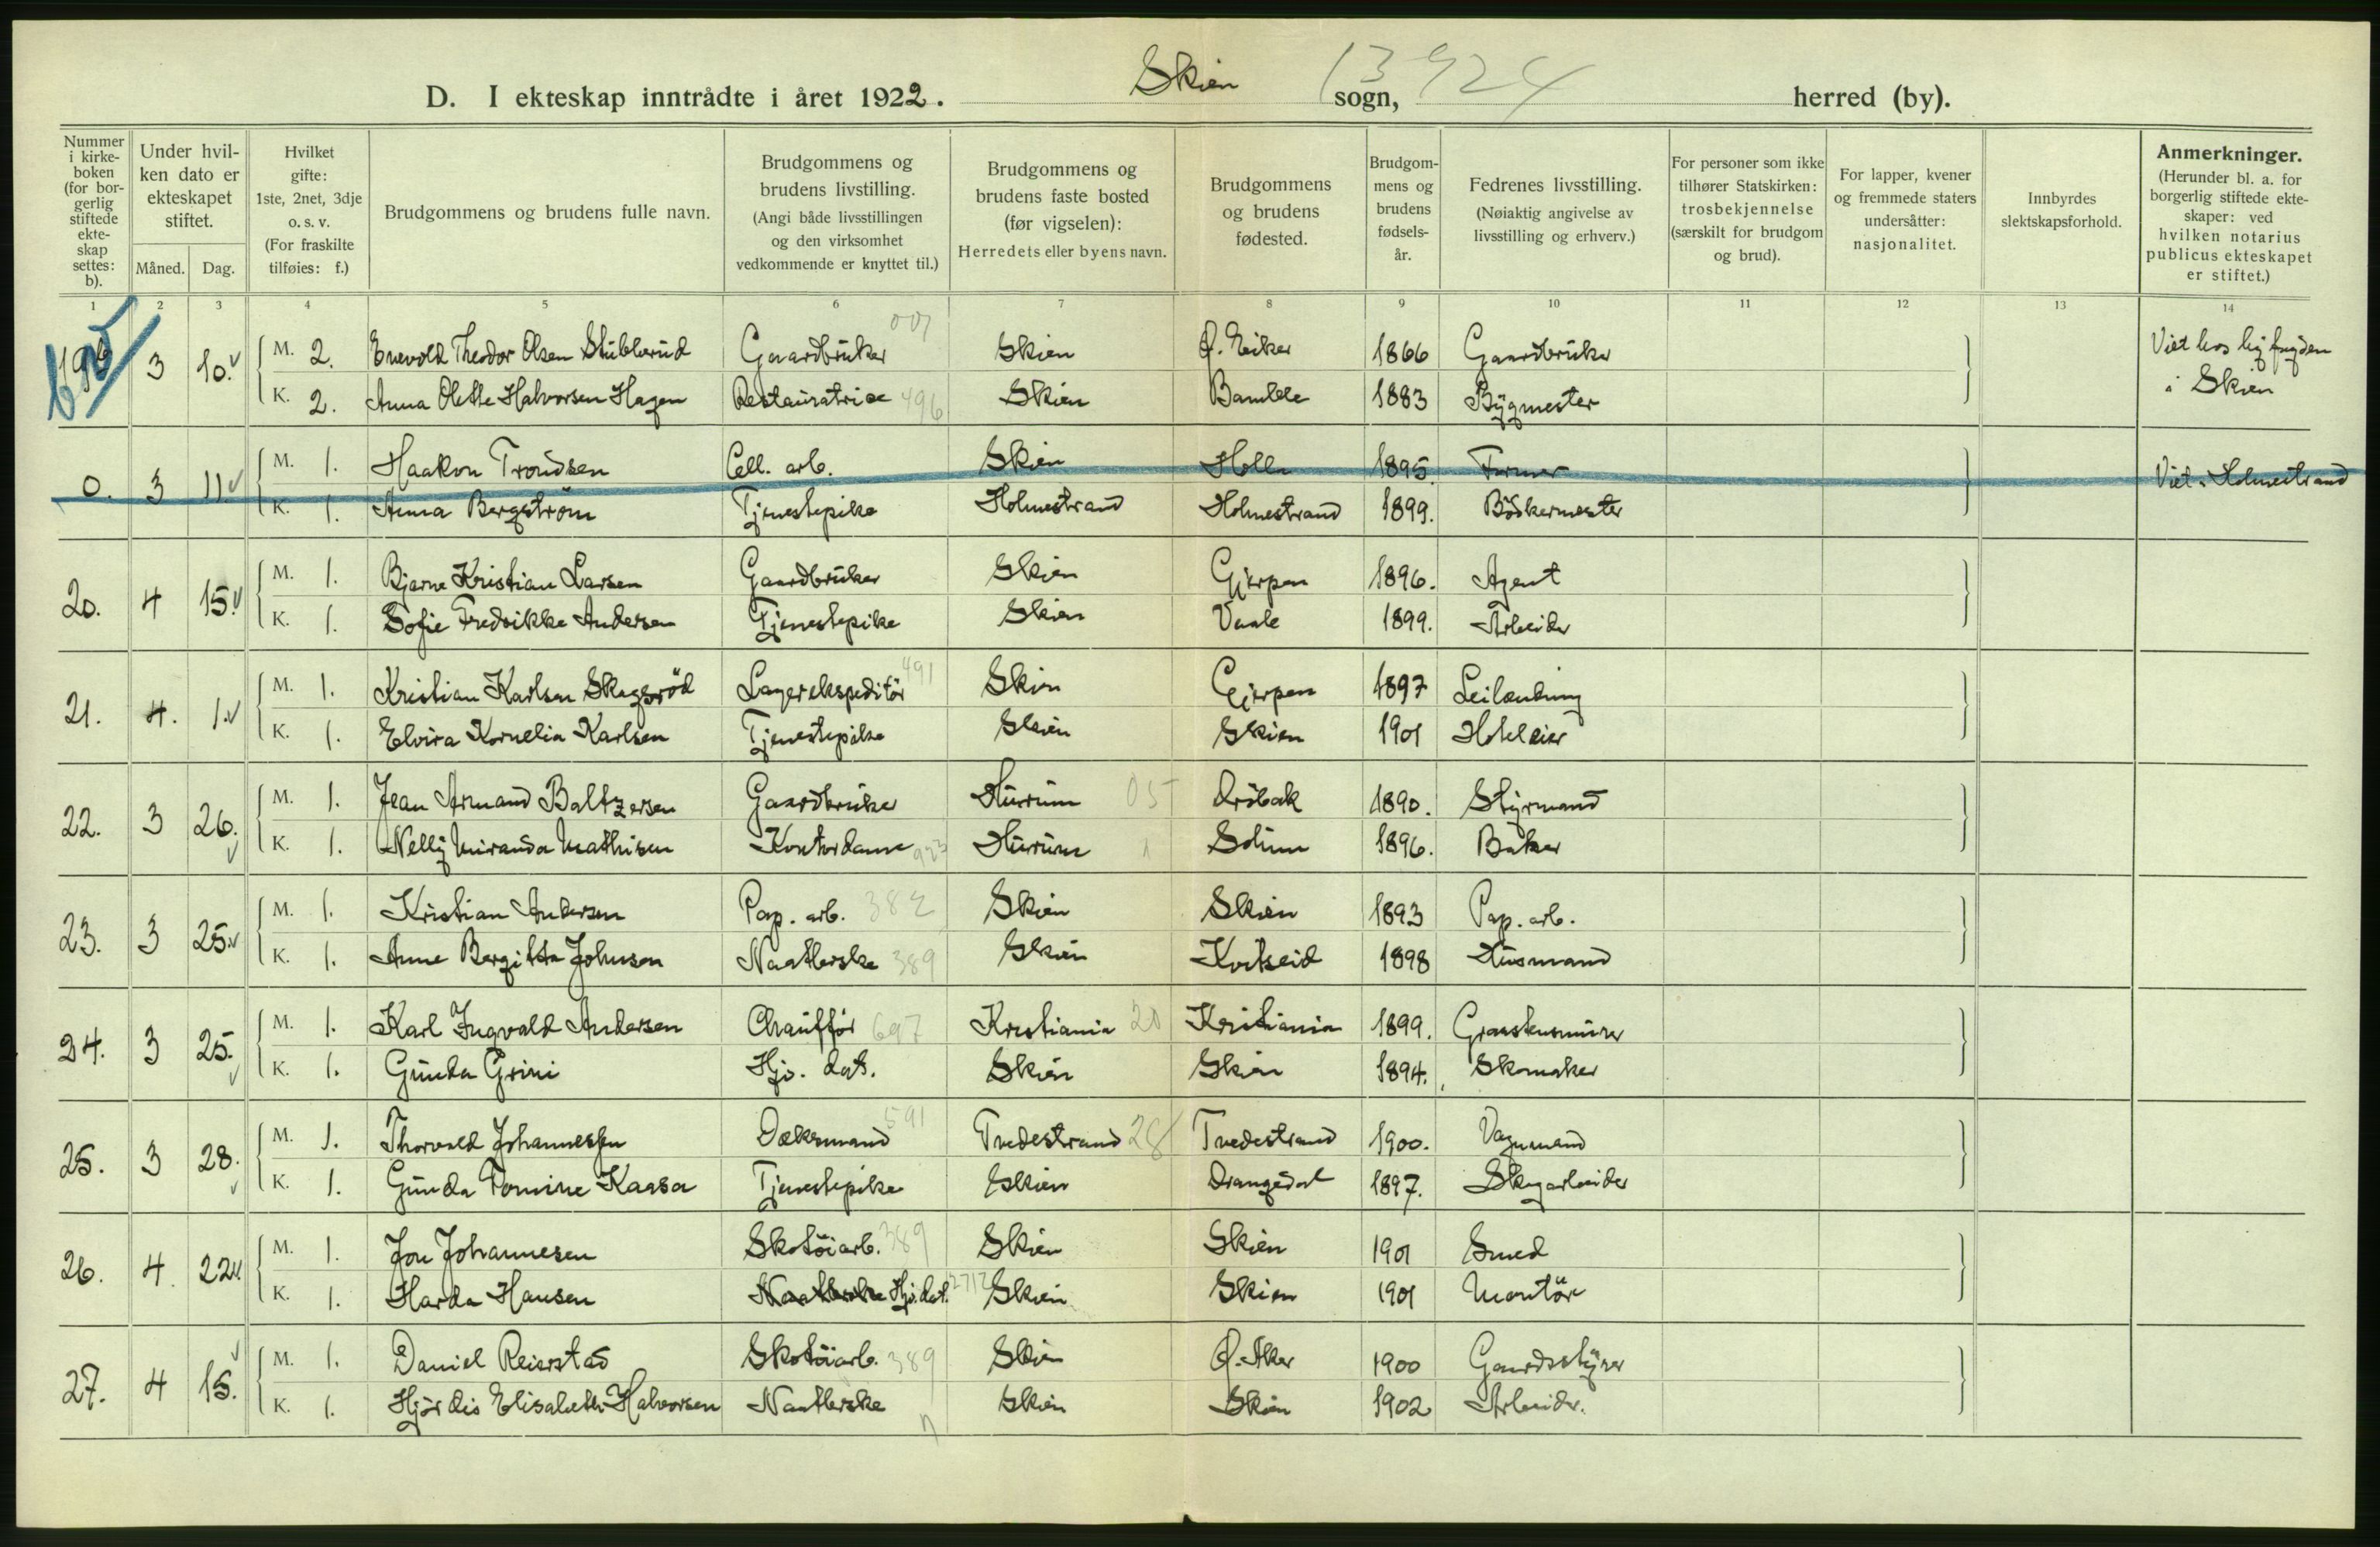 Skien 13924
D. I ekteskap inntrådte i året 1922. sogn, herred (by).
Nummer i kirkeboken (for borgerlig stiftede ekteskap settes: b).
Under hvilken dato er ekteskapet stiftet.
Måned. Dag.
Hvilket gifte: 1ste, 2net, 3dje o. s. v. (For fraskilte tilføies: f.)
Brudgommens og brudens fulle navn.
Brudgommens og brudens livstilling. (Angi både livsstillingen og den virksomhet vedkommende er knyttet til.)
Brudgommens og brudens faste bosted (før vigselen): Herredets eller byens navn.
Brudgommens og brudens fødested.
Brudgommens og brudens fødselsår.
Fedrenes livsstilling. (Nøiaktig angivelse av livsstilling og erhverv.)
For personer som ikke tilhører Statskirken: trosbekjennelse (særskilt for brudgom og brud).
For lapper, kvener og fremmede staters undersåtter: nasjonalitet.
Innbyrdes slektskapsforhold.
Anmerkninger. (Herunder bl. a. for borgerlig stiftede ekteskaper: ved hvilken notarius publicus ekteskapet er stiftet.)
1 2 3 4 5 6 7 8 9 10 11 12 13 14
3 10. M. 2. Enevold Theodor Olsen Stubberud Gaardbruker 007 Skien Ø. Eiker 1866 Gaardbruker Viet hos
K. 2. Anna Olette Halvorsen Hagen Restauratrice 496 Skien Bamble 1883 Bygmester i Skien
0. 3 11. M. 1. Haakon Trondsen Cell. arb. Skien Holla 1895. Former Viet i Holmestrand
K. 1. Anna Bergström Tjenestepike Holmestrand Holmestrand 1899. Bödkermester
20. 4 15. M. 1. Bjarne Kristian Larsen Gaardbruker Skien Gjerpen 1896. Agent
K. 1. Sofie Fredrikke Andersen Tjenestepike Skien Vaale 1899. Arbeider
21. 4. 1. M. 1. Kristian Karlsen Skagerød Lagerekspeditör 491 Skien Gjerpen 1897 Leilending
K. 1. Elvira Kornelia Karlsen Tjenestepike Skien Skien 1901 Hoteleier
22. 3 26. M. 1. Jean Armand Baltzersen Gaardbruker Hurum 05 Dröbak 1890. Styrmand
K. 1. Nelly Miranda Mathisen Kontordame 923 Hurum Solum 1896. Baker
23. 3 25. M. 1. Kristian Andersen Pap. arb. 382 Skien Skien 1893 Pap. arb.
K. 1. Anne Bergitte Johnsen Naatlerske 389 Skien Kviteseid 1898 Husmand
24. 3 25. M. 1. Karl Ingvald Andersen Chauffør 697 Kristiania 20 Kristiania 1899. Graastensmurer
K. 1. Gunda Grini Hjv. dat. Skien Skien 1894. Skomaker
25. 3 28. M. 1. Thorvald Johannessen Dæksmand 591 Tvedestrand 28 Tvedestrand 1900. Vognmand
K. 1. Gunda Tomine Kaasa Tjenestepike Skien Drangedal 1897. Skogarbeider
26. 4. 22. M. 1. Jon Johannesen Skotöiarb. 389 Skien Skien 1901 Smed
K. 1. Harda Hansen Naatlerske Hjv. dat. Skien Skien 1901 Montör
27. 4 15. M. 1. Daniel Reierstad Skotöiarb. 389 Skien Ø. Aker 1900 Gaardsstyrer
K. 1. Hjördis Elisabeth Halvorsen Naatlerske Skien Skien 1902 Arbeider.